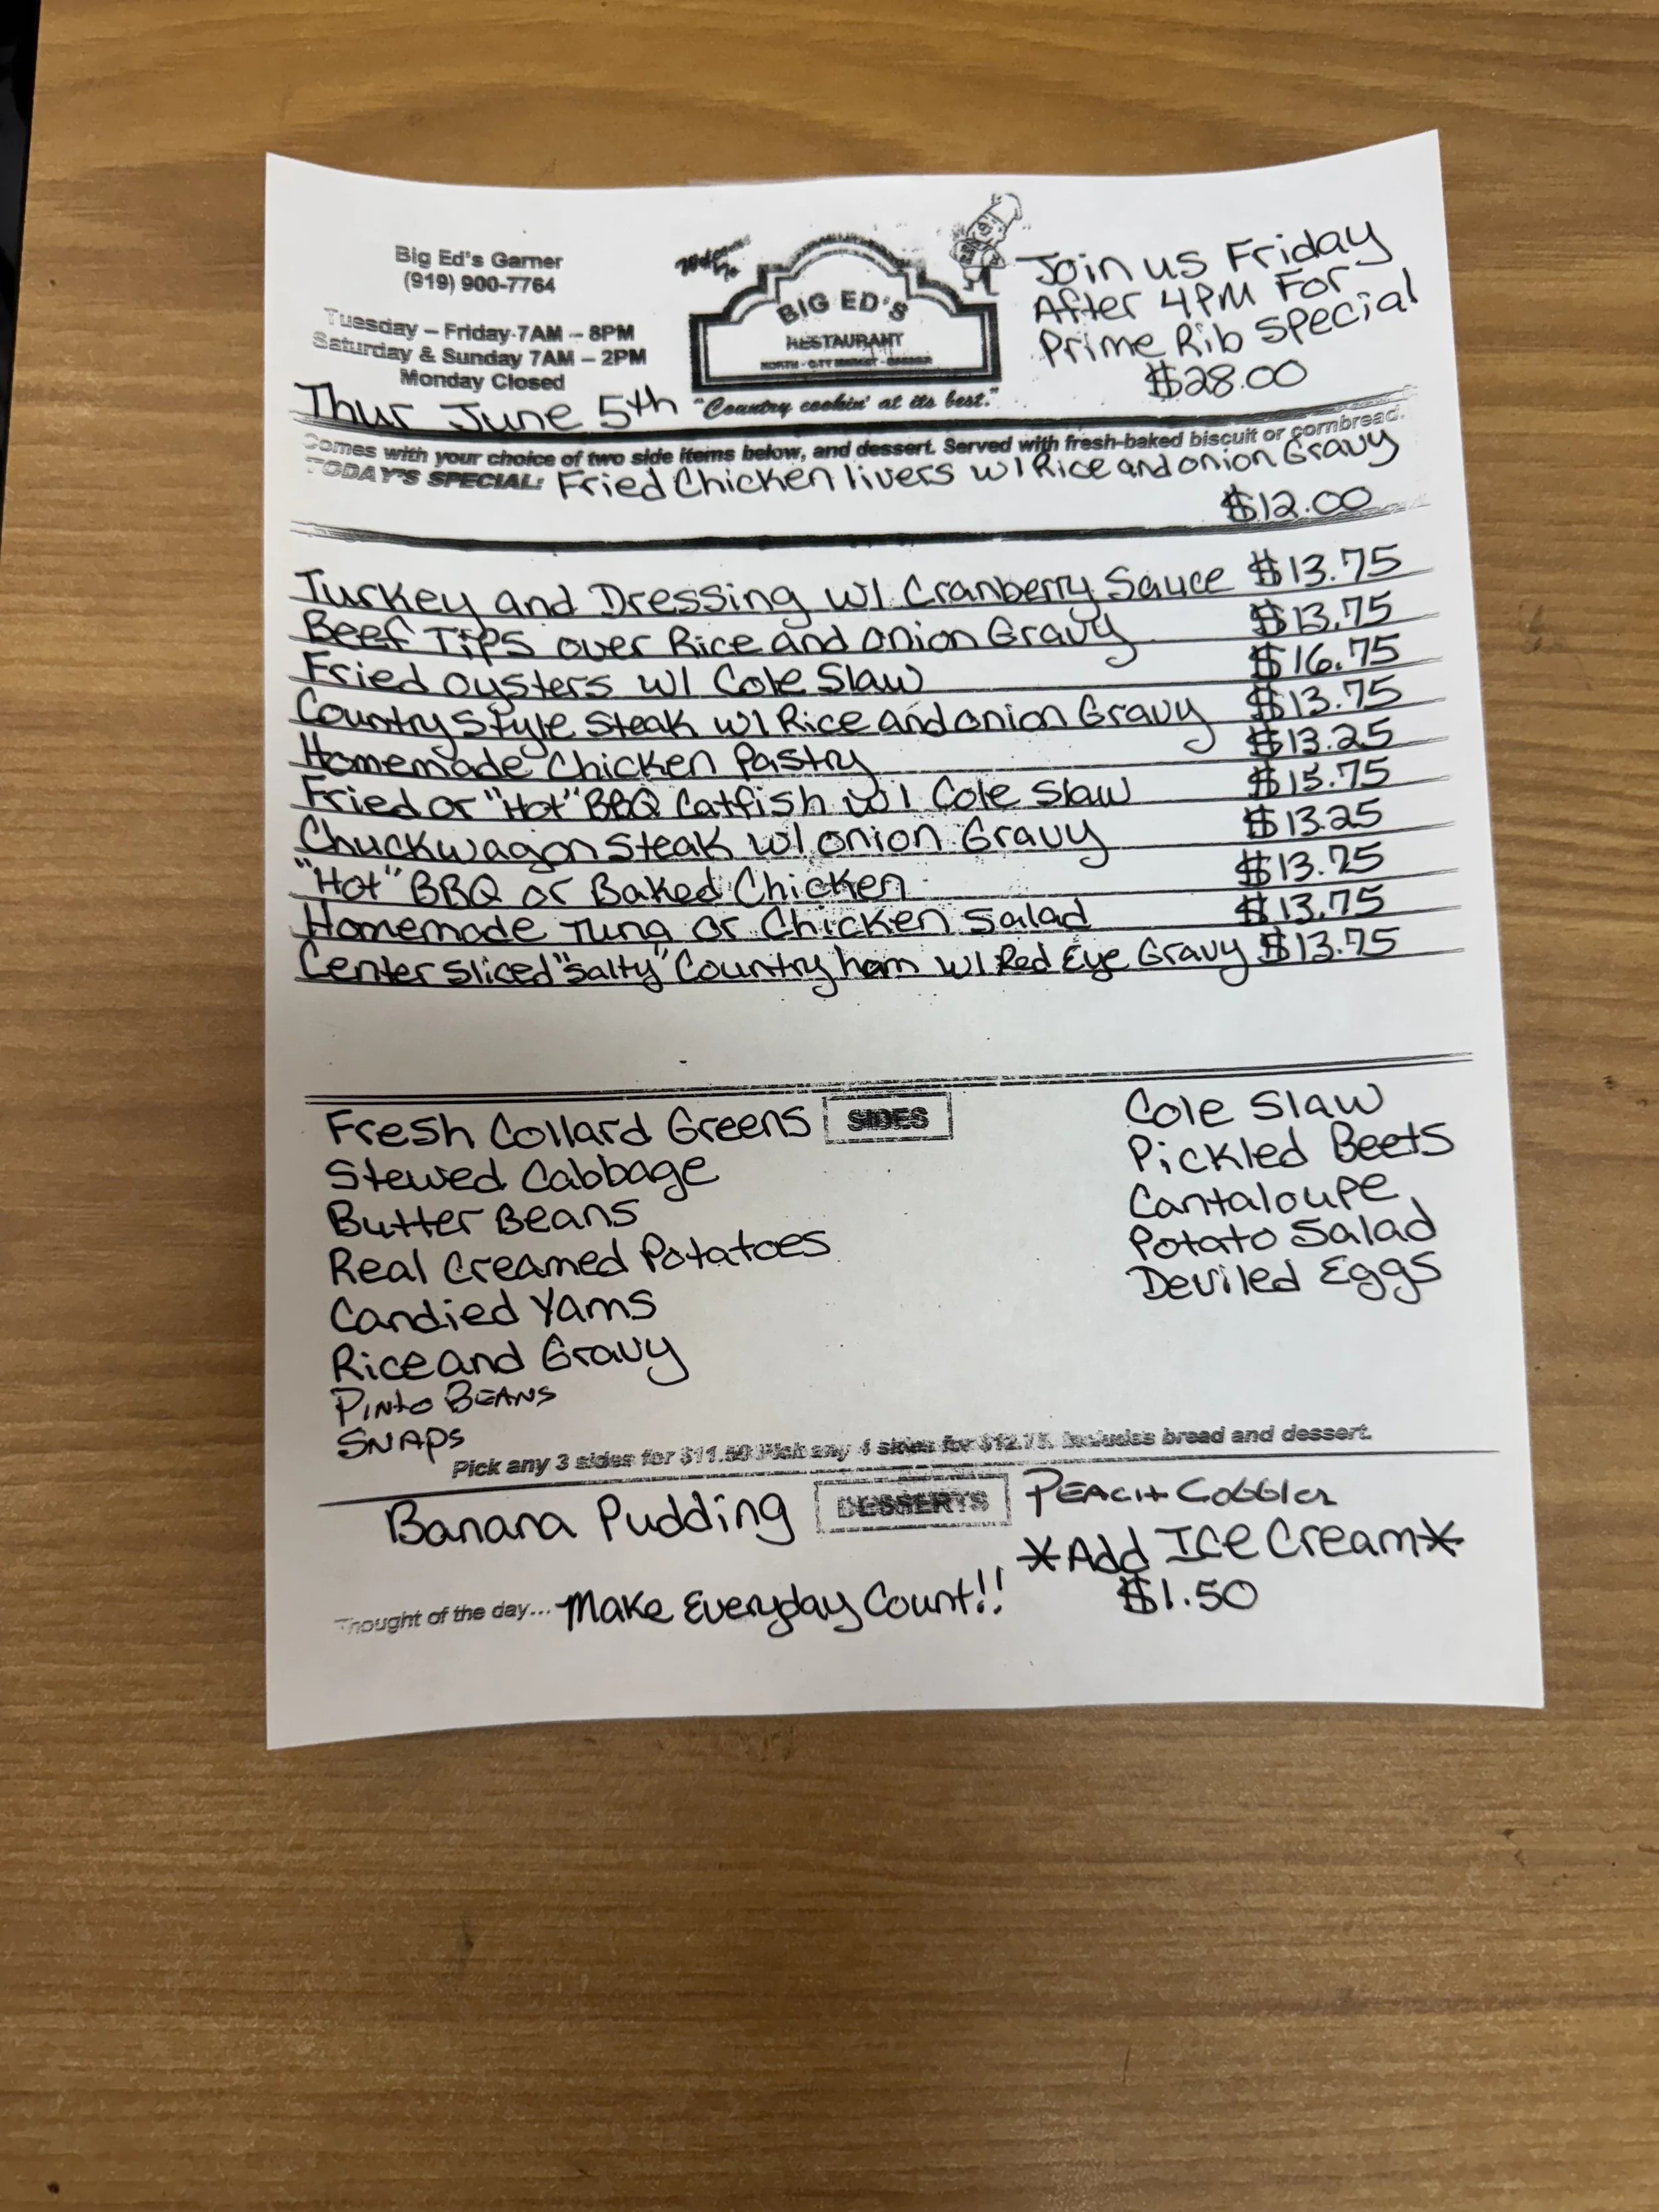 Big Ed's Garner
(919) 900-7764
Tuesday – Friday 7AM – 8PM
Saturday & Sunday 7AM – 2PM
Monday Closed
Thur June 5th
Welcome To
BIG ED'S
RESTAURANT
NORTH - CITY MARKET - GARNER
"Country cookin' at its best."
Join us Friday
After 4PM For
Prime Rib Special
$28.00
Comes with your choice of two side items below, and dessert. Served with fresh-baked biscuit or cornbread.
TODAY'S SPECIAL: Fried Chicken livers w/ Rice and onion Gravy
$12.00
Turkey and Dressing w/ Cranberry Sauce $13.75
Beef Tips over Rice and onion Gravy $13.75
Fried oysters w/ Cole Slaw $16.75
Country Style Steak w/ Rice and onion Gravy $13.75
Homemade Chicken Pastry $13.25
Fried or "Hot" BBQ Catfish w/ Cole Slaw $15.75
Chuckwagon Steak w/ onion Gravy $13.25
"Hot" BBQ or Baked Chicken $13.25
Homemade Tuna or Chicken Salad $13.75
Center Sliced "Salty" Country ham w/ Red Eye Gravy $13.75
SIDES
Fresh Collard Greens
Stewed Cabbage
Butter Beans
Real Creamed Potatoes
Candied Yams
Rice and Gravy
Pinto BEANS
SNAPS
Cole Slaw
Pickled Beets
Cantaloupe
Potato Salad
Deviled Eggs
Pick any 3 sides for $11.50 Pick any 4 sides for $12.75. Includes bread and dessert.
DESSERTS
Banana Pudding
PEACH Cobbler
*Add Ice Cream*
$1.50
Thought of the day... Make Everyday Count!!